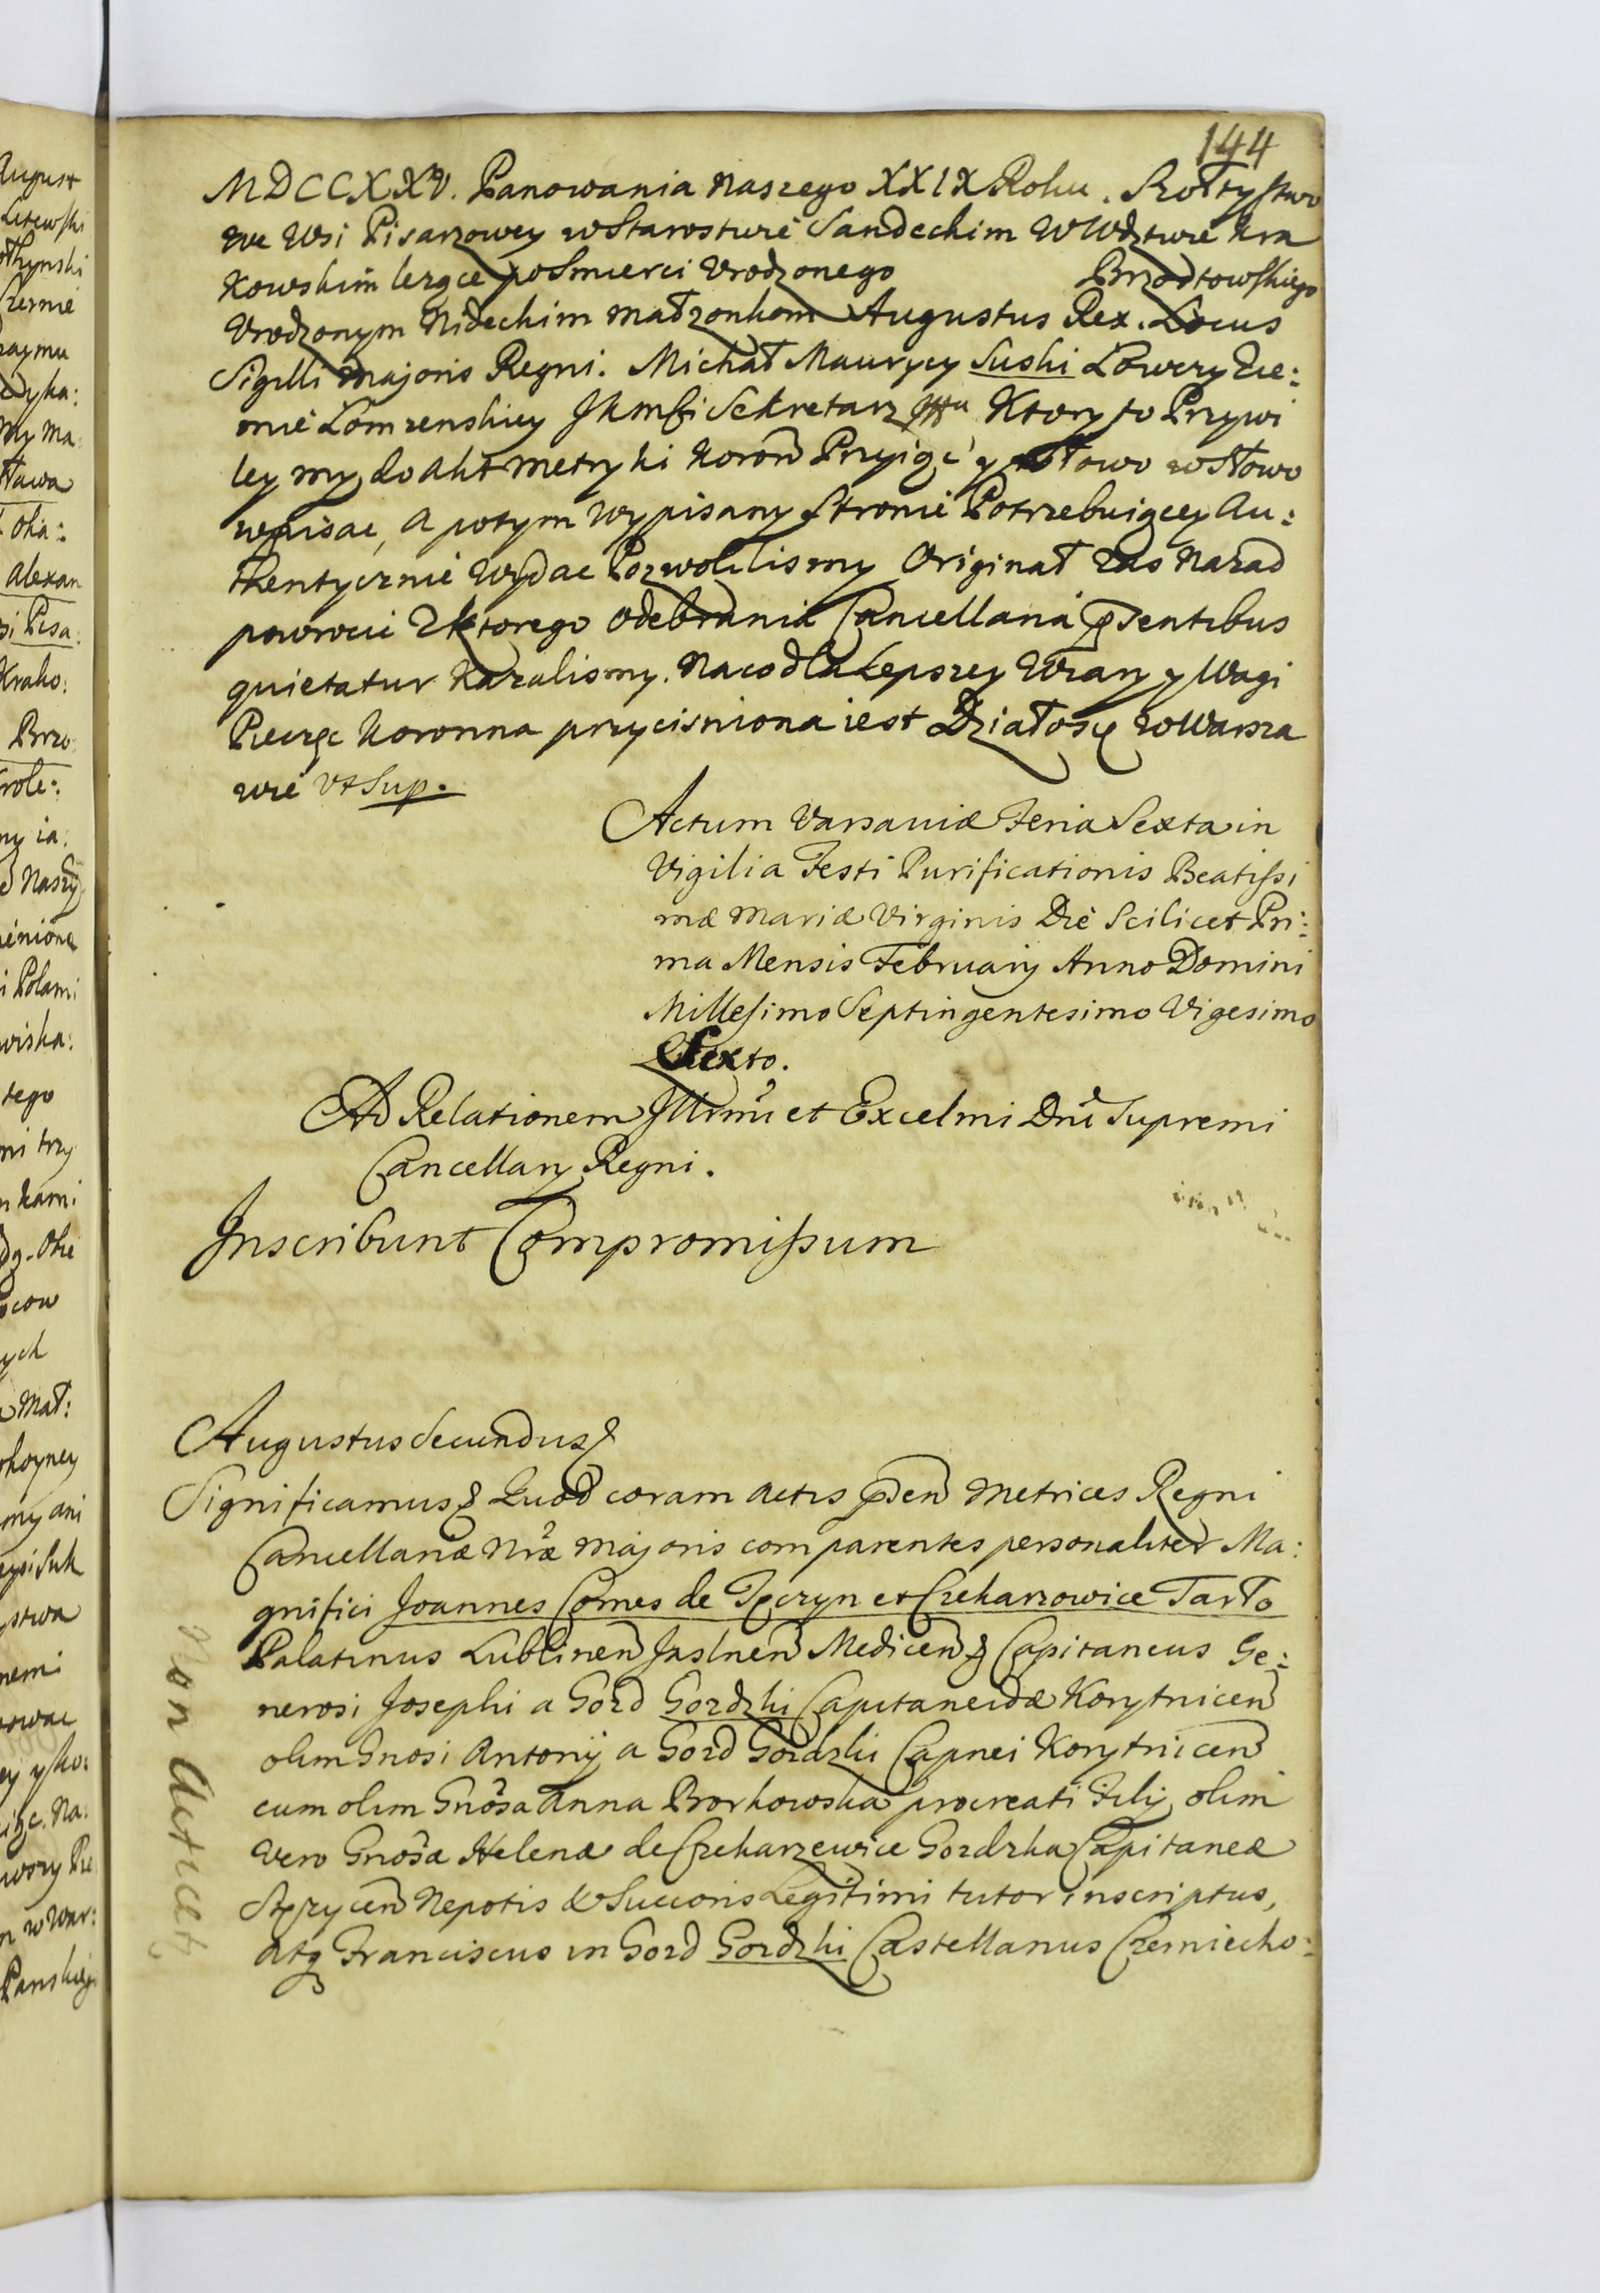 144
MDCCXXV. Panowania Naszego XXIX Roku. Szołtystwo
we Wsi Pisarzowey w Starostwie Sandeckim w Wdztwie Kra
kowskim lezące po Smierci Urodzonego Brzodtowskiego
Urodzonym Nideckim małzonkom Augustus Rex. Locus
Sigilli majoris Regni. Michał Maurycy Suski Łowczy Zie:
mie Łomzenskiey JKMsci Sekretarz Ktory to Przywi
ley my do akt metryki Koron Przyiąć y słowo w Słowo
wpisac, a potym wypisany Stronie Potrzebuiącey Au:
thentycznie wydac Pozwolilismy Originał zas Nazad
powrocic z ktorego odebrania Cancellaria p̃sentibus
quietatur kazalismy. Na co dla Lepszey Wiary y Wagi
Pieczęc Koronna przycisniona iest Działosię w Warsza
wie Ut Sup.
Actum Varsaviæ Feria Sexta in
Vigilia Festi Purificationis Beatissi
mæ Mariæ Virginis Die Scilicet Pri:
ma Mensis February Anno Domini
Millesimo Septingentesimo Vigesimo
Sexto.
Ad Relationem Illrmi et Excelmi Dni Supremi
Cancellary Regni.
Inscribunt Compromissum
Augustus Secundus &
Significamus & Quod coram Actis p̃sen Metrices Regni
Cancellariæ Nræ Majoris comparentes personaliter Ma:
gnifici Joannes Comes de Tęczyn et Czekarzowice Tarło
Palatinus Lublinen Jaslnen Medicen & Capitaneus Ge:
nerosi Josephi a Gozd Gozdzki Capitaneidæ Korytnicen
olim Gnosi Antonij a Gozd Gozdzki Capnei Korytnicen
cum olim Gnosa Anna Borkowska procreati Filij, olim
vero Gnosæ Helenæ de Czekarzewice Gozdzka Capitaneæ
Stęzycen Nepotis & Succoris Legitimi tutor inscriptus,
atq Franciscus in Gozd Gozdzki Castellanus Czerniecho:
Non Acticat